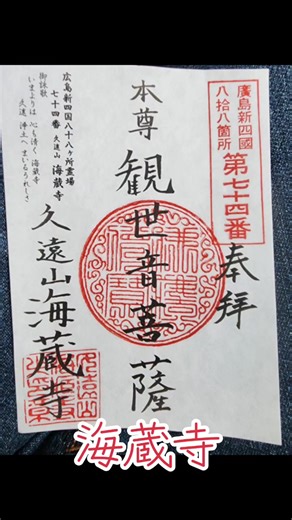 廣島新四國
八拾八箇所
第七十四番
奉拝
本尊 観世音菩薩
久遠山海蔵寺
広島新四国八十八ヶ所霊場
七十四番 久遠山 海蔵寺
御詠歌
いまよりは 心も清く 海蔵寺
久遠浄土へ まいるうれしさ
海蔵寺